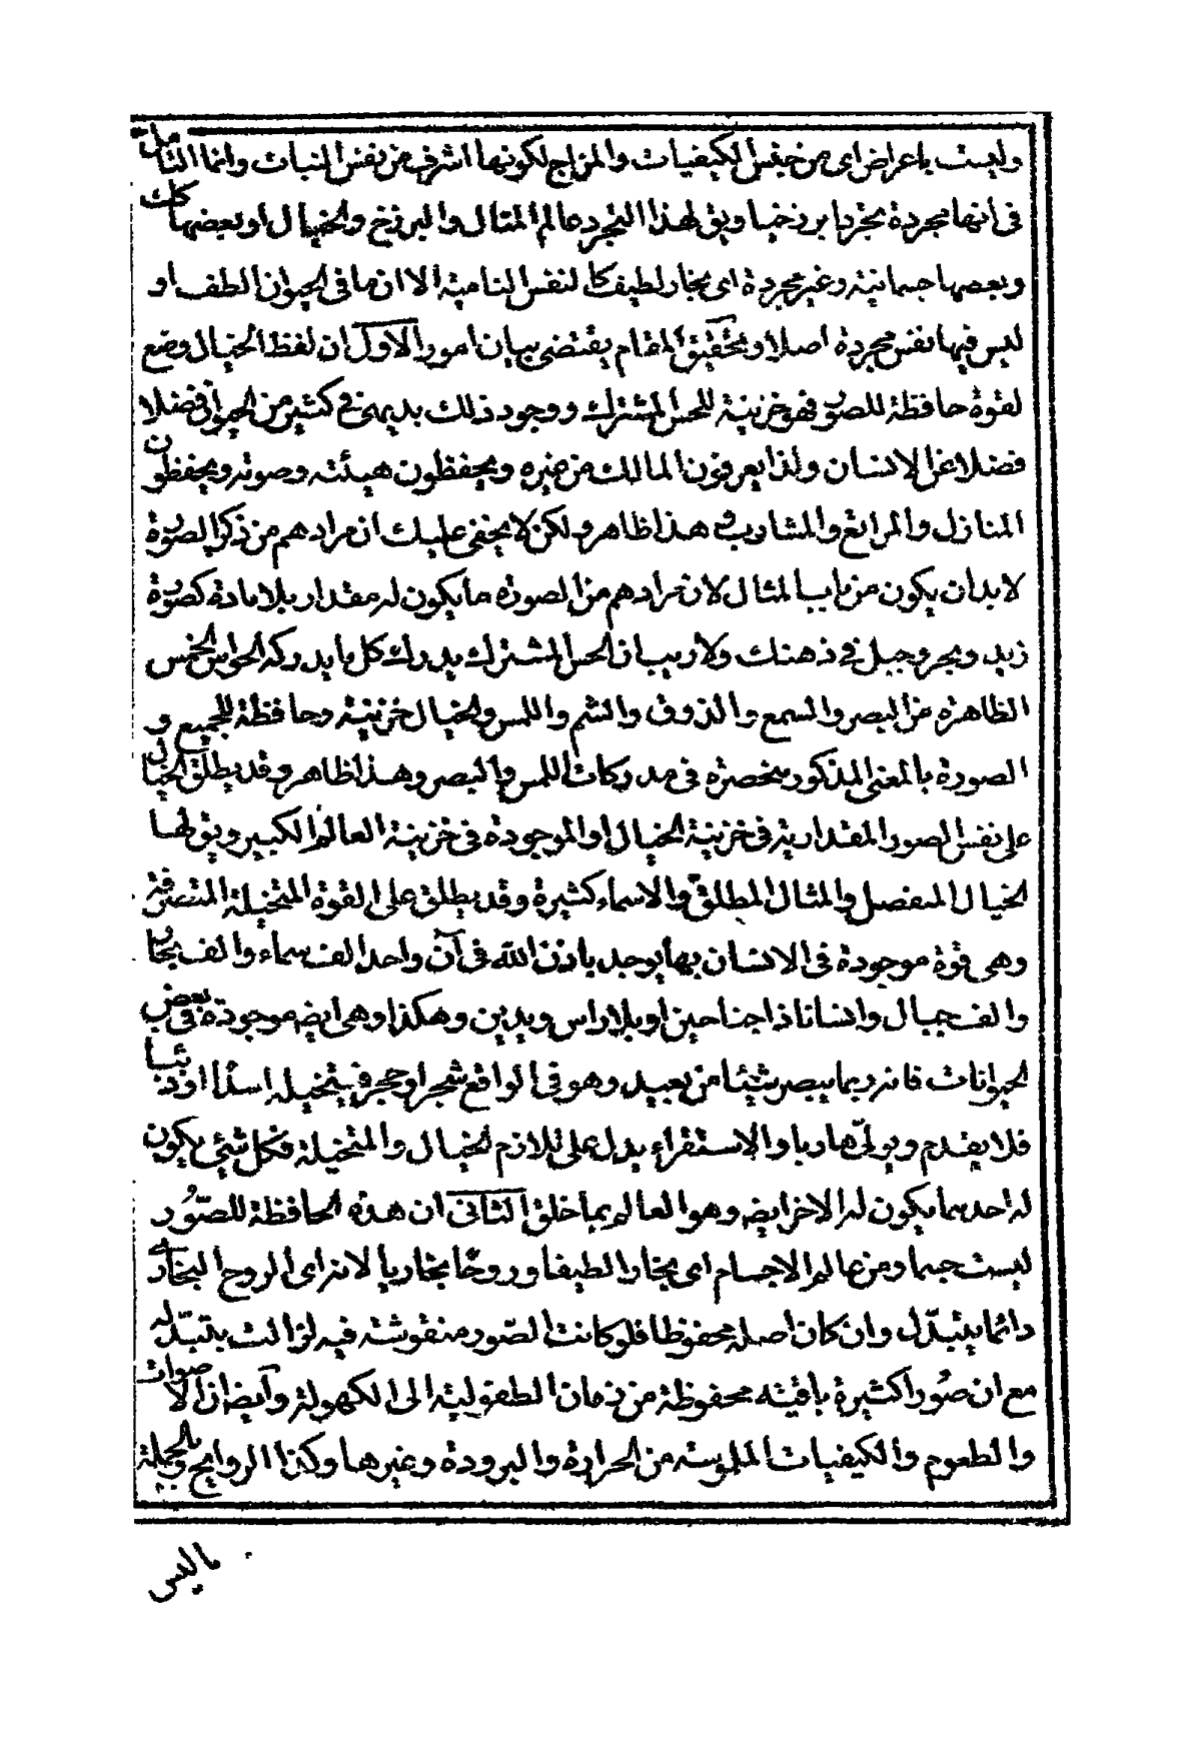 وليست باعراض اى من جنس الكيفيات والمزاج لكونها اشرف من نفس النبات وانما التامل
فى انها مجردة مجردا برزخيا ويق لهذا التجرد عالم المثال والبرزخ والخيال او بعضها كك
وبعضها جسمانية وغير مجردة اى بخار لطيف كالنفس النامية الا ان ما فى الحيوان الطف او
ليس فيها نفس مجردة اصلا وتحقيق المقام يقتضى بيان امور الاول ان لفظ الخيال وضع
لقوة حافظة للصور فهو خزينة للحس المشترك ووجود ذلك بديهى فى كثير من الحيوان فضلا
فضلا عن الانسان ولذا يعرفون المالك من غيره ويحفظون هيئته وصوته ويحفظون
المنازل والمراتع والمشارب و هذا ظاهر ولكن لا يخفى عليك ان مرادهم من ذكر الصورة
لا بد ان يكون من باب المثال لان مرادهم من الصورة ما يكون له مقدار بلا مادة كصورة
زيد وبحر وجبل فى ذهنك ولا ريب ان الحس المشترك يدرك كل ما يدركه الحواس الخمس
الظاهرة من البصر والسمع والذوق والشم واللمس والخيال خزينة وحافظة للجميع و
الصورة بالمعنى المذكور منحصرة فى مدركات اللمس والبصر وهذا ظاهر وقد يطلق الخيال
على نفس الصور المقدارية فى خزينة الخيال او الموجودة فى خزينة العالم الكبير ويق لها
الخيال المنفصل والمثال المطلق والاسماء كثيرة وقد يطلق على القوة المتخيلة المتصرفة
وهى قوة موجودة فى الانسان بها يوجد باذن الله فى آن واحد الف سماء والف بحار
والف جبال وانسانا ذا جناحين او بلا راس ويدين وهكذا وهى ايضه موجودة فى بعض
الحيوانات فانه ربما يبصر شيئا من بعيد وهو فى الواقع شجر او حجر فيتخيله اسدا او ذئبا
فلا يقدم ويولّى هاربا والاستقراء يدل على تلازم الخيال والمتخيلة فكل شيئ يكون
له احدهما يكون له الاخر ايضه وهو العالم بما خلق الثانى ان هذه الحافظة للصّور
ليست جسما ومن عالم الاجسام اى بخارا لطيفا وروحا بخاريا لانه اى الروح البخارى
دائما يتبدّل وان كان اصله محفوظا فلو كانت الصّور منقوشة فيه لزالت بتبدّله
مع ان صورا كثيرة باقية محفوظة من زمان الطفولية الى الكهولة وايضا ان الاصوات
والطعوم والكيفيات الملموسة من الحرارة والبرودة وغيرها وكذا الروايح وبالجملة
ما ليس